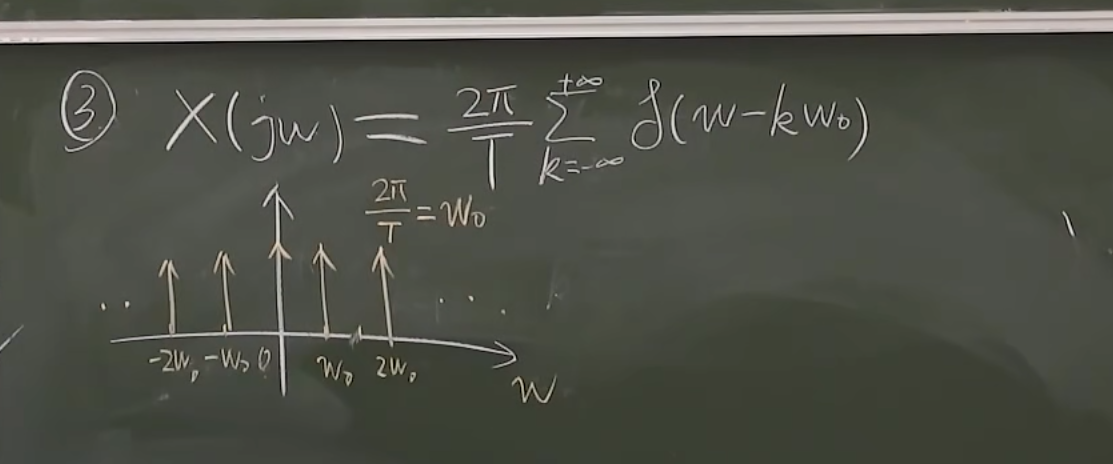 ③ X(jw) = 2π/T +∞∑k=-∞ δ(w-kw₀)
2π/T = w₀
.. . . .
-2w₀ -w₀ 0 w₀ 2w₀
w